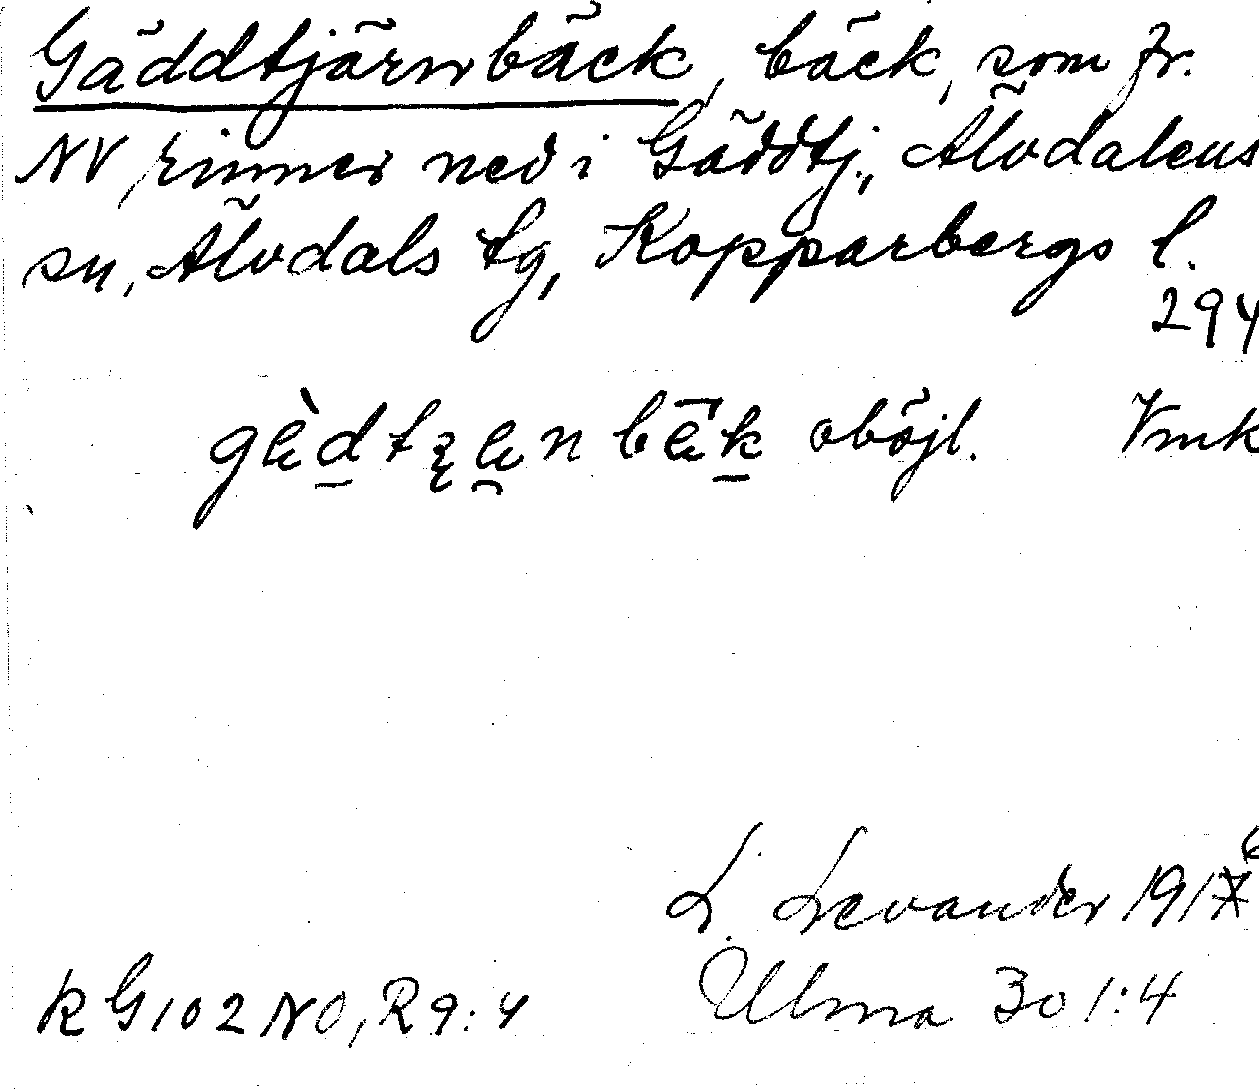 Gäddtjärnbäck, bäck, som fr.
NV rinner ned i Gäddtj., Älvdalens
sn, Älvdals tg, Kopparbergs l.
294
oböjl. Vmk
L. Levander 1916
RG 102 NO, R9:4 Ulma 301:4